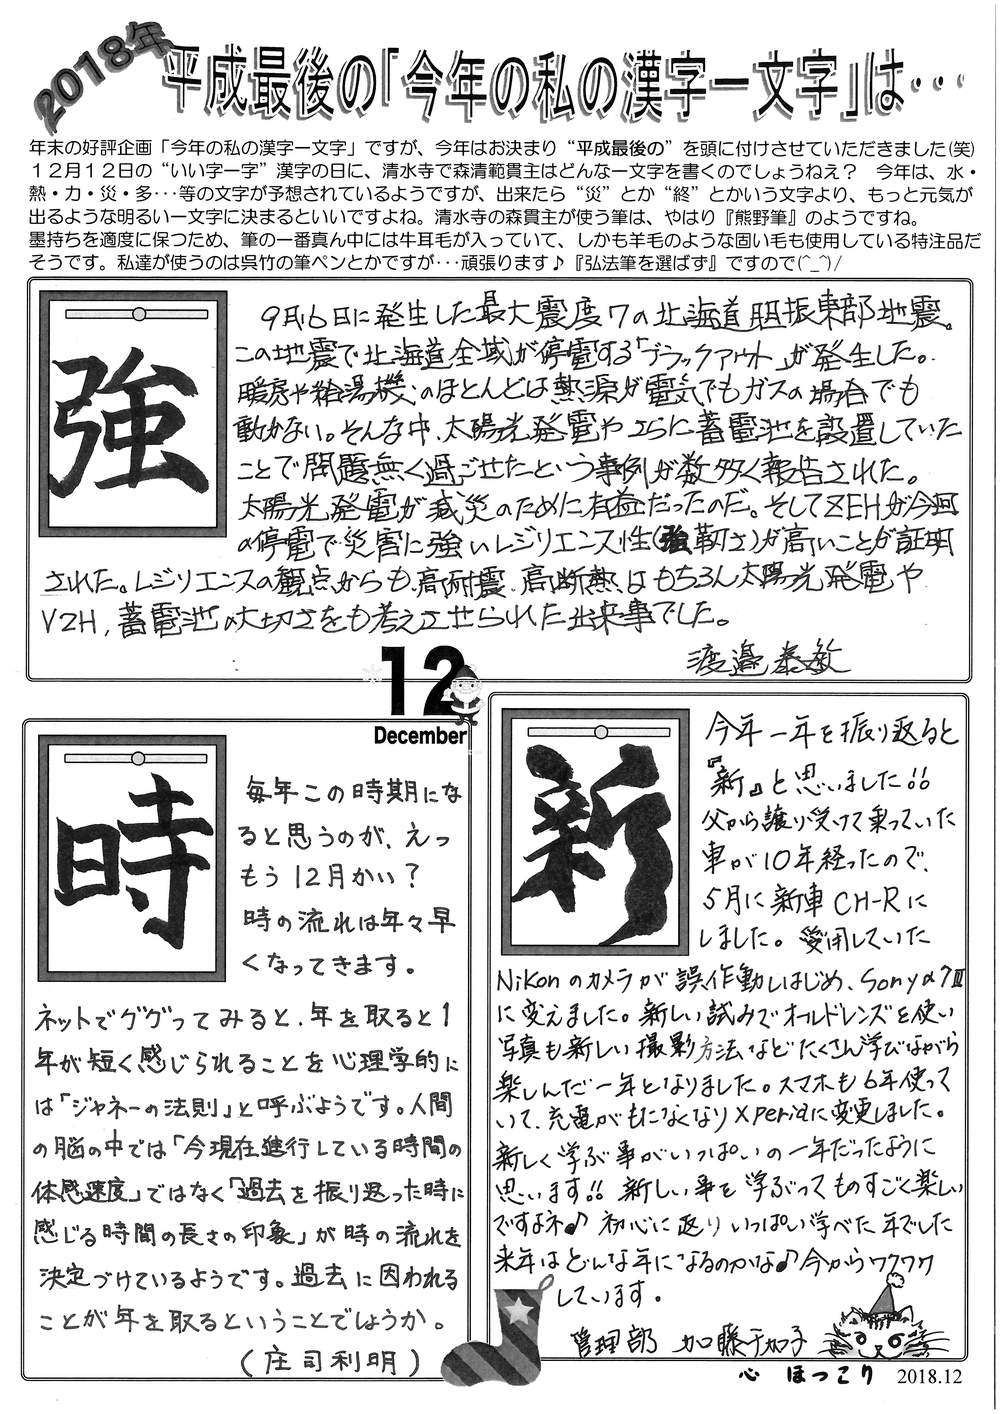 2018年
平成最後の「今年の私の漢字一文字」は・・・
年末の好評企画「今年の私の漢字一文字」ですが、今年はお決まり“平成最後の”を頭に付けさせていただきました(笑)
１２月１２日の“いい字一字”漢字の日に、清水寺で森清範貫主はどんな一文字を書くのでしょうねえ？　今年は、水・
熱・力・災・多・・・等の文字が予想されているようですが、出来たら“災”とか“終”とかいう文字より、もっと元気が
出るような明るい一文字に決まるといいですよね。清水寺の森貫主が使う筆は、やはり『熊野筆』のようですね。
墨持ちを適度に保つため、筆の一番真ん中には牛耳毛が入っていて、しかも羊毛のような固い毛も使用している特注品だ
そうです。私達が使うのは呉竹の筆ペンとかですが・・・頑張ります♪『弘法筆を選ばず』ですので(^_^)/
強
9月6日に発生した最大震度7の北海道胆振東部地震。
この地震で北海道全域が停電する「ブラックアウト」が発生した。
暖房や給湯機のほとんどは熱源が電気でもガスの場合でも
動かない。そんな中、太陽光発電やさらに蓄電池を設置していた
ことで問題無く過ごせたという事例が数多く報告された。
太陽光発電が減災のために有益だったのだ。そしてZEHが今回
の停電で災害に強いレジリエンス性(強靭さ)が高いことが証明
された。レジリエンスの観点からも、高耐震、高断熱はもちろん太陽光発電や
V2H、蓄電池の大切さをも考えさせられた出来事でした。
渡邉泰敏
12
December
時
毎年この時期にな
ると思うのが、えっ
もう12月かい？
時の流れは年々早
くなってきます。
ネットでググってみると、年を取ると1
年が短く感じられることを心理学的に
は「ジャネーの法則」と呼ぶようです。人間
の脳の中では「今現在進行している時間の
体感速度」ではなく「過去を振り返った時に
感じる時間の長さの印象」が時の流れを
決定づけているようです。過去に囚われる
ことが年を取るということでしょうか。
(庄司利明)
新
今年一年を振り返ると
『新』と思いました!!
父から譲り受けて乗っていた
車が10年経ったので、
5月に新車CH-Rに
しました。愛用していた
Nikonのカメラが誤作動しはじめ、Sonyα7Ⅲ
に変えました。新しい試みでオールドレンズを使い
写真も新しい撮影方法などたくさん学びながら
楽しんだ一年となりました。スマホも6年使って
いて、充電がもたなくなりXperiaに変更しました。
新しく学ぶ事がいっぱいの一年だったように
思います!!新しい事を学ぶってものすごく楽しい
ですよネ♪初心に返りいっぱい学べた年でした
来年はどんな年になるのかな♪今からワクワク
しています。
管理部 加藤千加子
心 ほっこり 2018.12